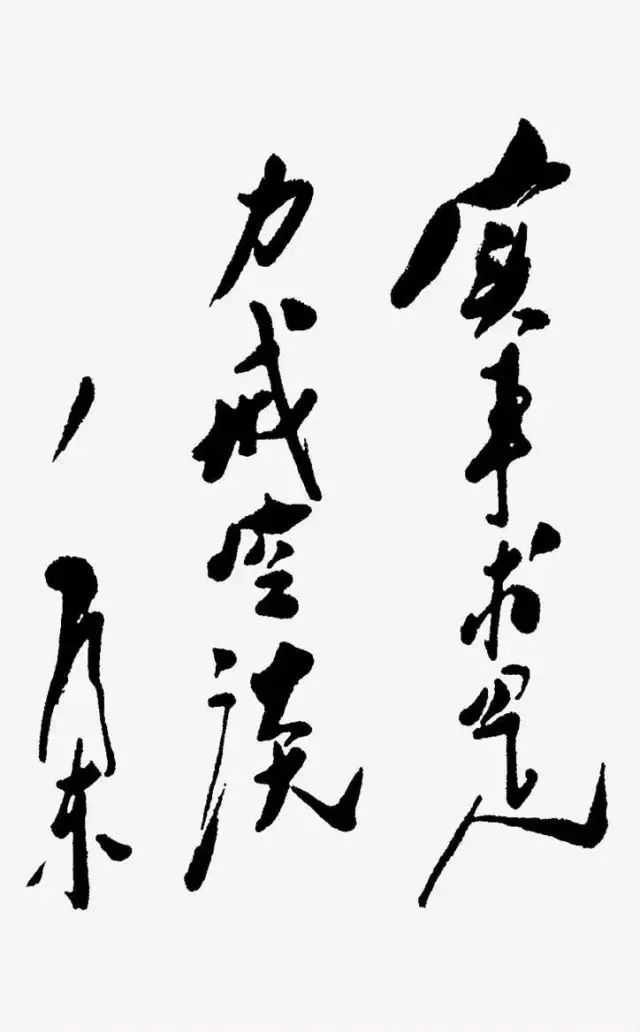 實事求是
力戒空談
毛泽东